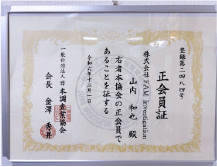 登録第二四八四号
正会員証
株式会社FAM investigation
山内 和也 殿
右者本協会の正会員で
あることを証する
令和六年十二月一日
一般社団法人 日本調査業協会
会長 金澤 秀則